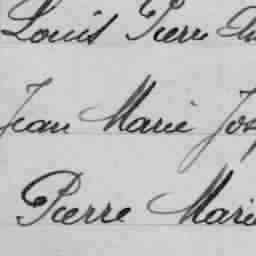 Louis Pierre
Jean Marie Jos
Pierre Marie